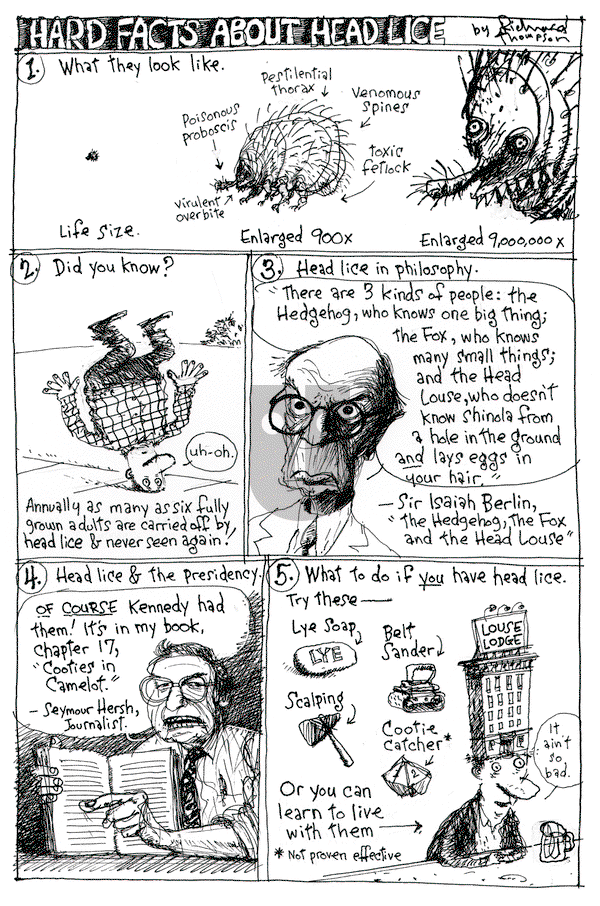 HARD FACTS ABOUT HEAD LICE
by Richard
Thompson
1. What they look like.
Pestilential
thorax
Venomous
spines
Poisonous
proboscis
toxic
fetlock
virulent
overbite
Life size.
Enlarged 900x
Enlarged 9,000,000 x
2. Did you know?
uh-oh.
Annually as many as six fully
grown adults are carried off by
head lice & never seen again!
3. Head lice in philosophy.
"There are 3 kinds of people: the
Hedgehog, who knows one big thing;
the Fox, who knows
many small things;
and the Head
Louse, who doesn't
know shinola from
a hole in the ground
and lays eggs in
your hair."
— Sir Isaiah Berlin,
"the Hedgehog, The Fox
and the Head Louse"
4. Head lice & the Presidency.
OF COURSE Kennedy had
them! It's in my book,
Chapter 17,
"Cooties in
Camelot."
— Seymour Hersh,
Journalist.
5. What to do if you have head lice.
Try these —
Lye Soap
LYE
Belt
Sander
Scalping
Cootie
Catcher*
2
LOUSE
LODGE
It
ain't
so
bad.
Or you can
learn to live
with them
* Not proven effective